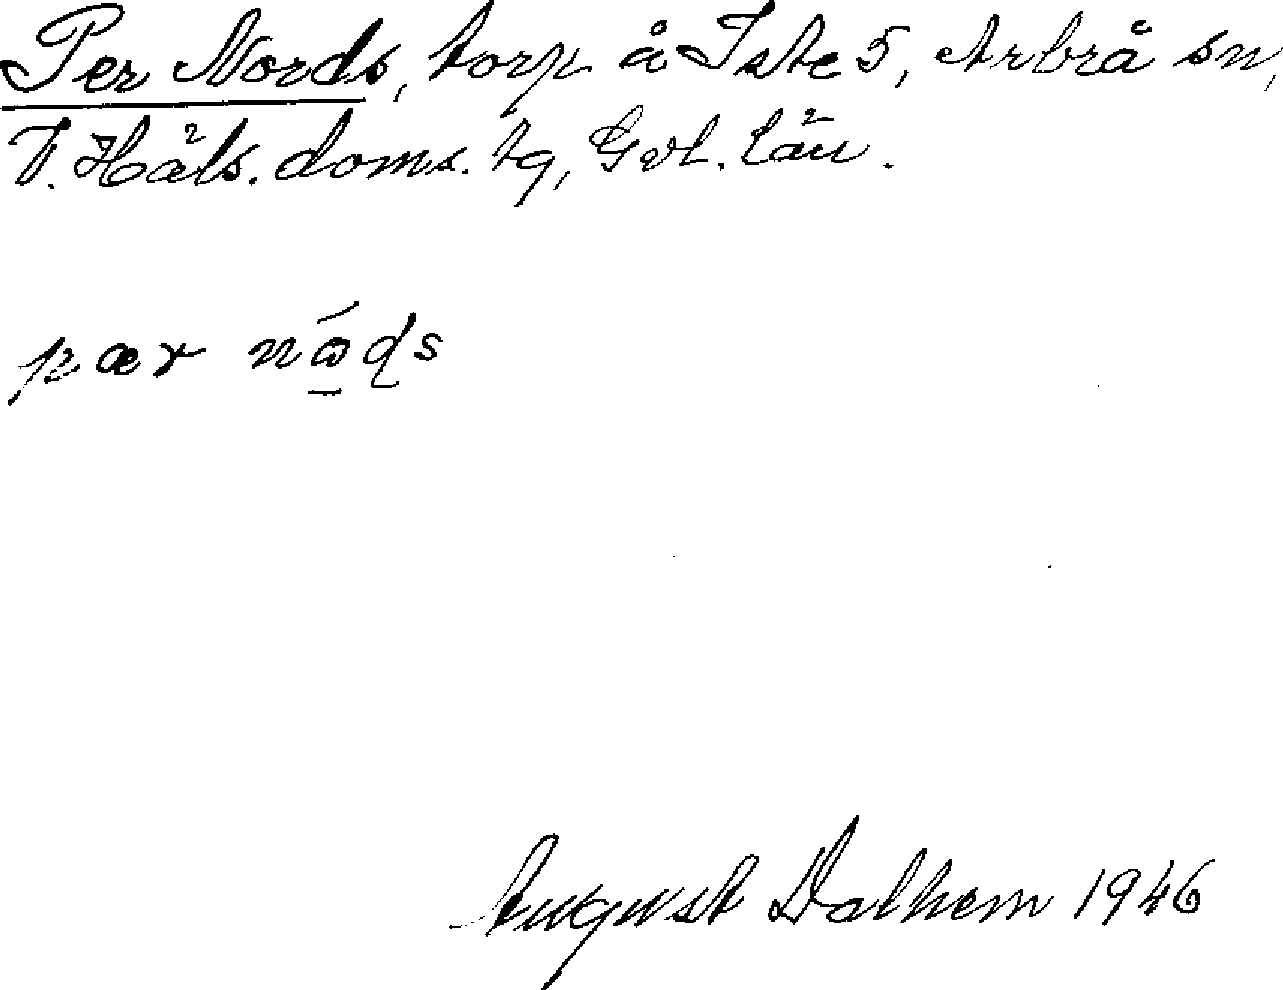 Per Nords, torp å Iste 5, Arbrå sn,
V. Häls. doms. tg, Gvl. län.
pær nó̱ɖs
August Dalhem 1946